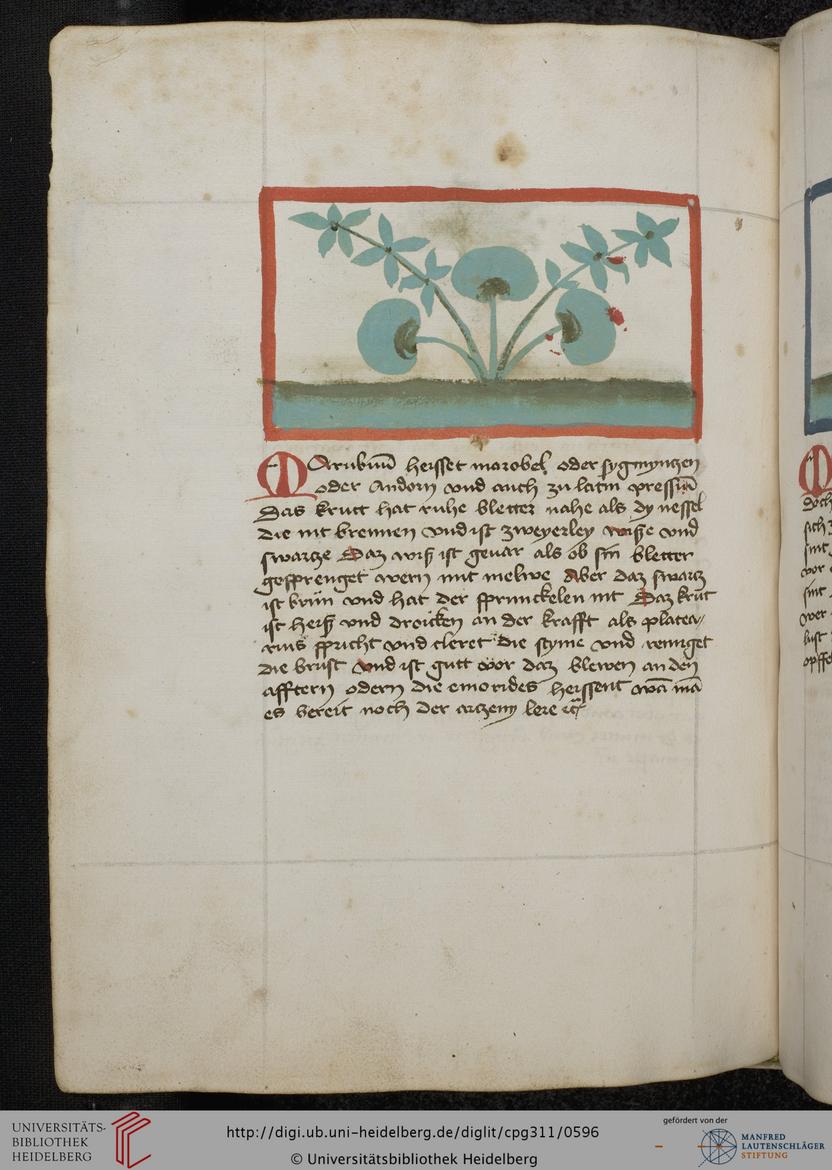 Marubium heisset marobel oder sygmyntzen
oder Andorn vnd auch zu latin pressium
Das krutt hat ruhe bletter nahe als dy nessel
die nit brennen vnd ist zweyerley wisse vnd
swartze Daz wiß ist gevar als ob sin bletter
gesprenget wern mit melwe Aber daz swartz
ist brün vnd hat der sprunckelen nit Daz krut
ist heiß vnd drocken an der krafft als platea/
rius spricht vnd cleret die styme vnd reniget
die brust vnd ist gutt vor daz blewen an den
afftern odern die emorides heissent wan man
es bereit noch der artzeny lere etc
UNIVERSITÄTS-
BIBLIOTHEK
HEIDELBERG
http://digi.ub.uni-heidelberg.de/diglit/cpg311/0596
© Universitätsbibliothek Heidelberg
gefördert von der
MANFRED
LAUTENSCHLÄGER
STIFTUNG